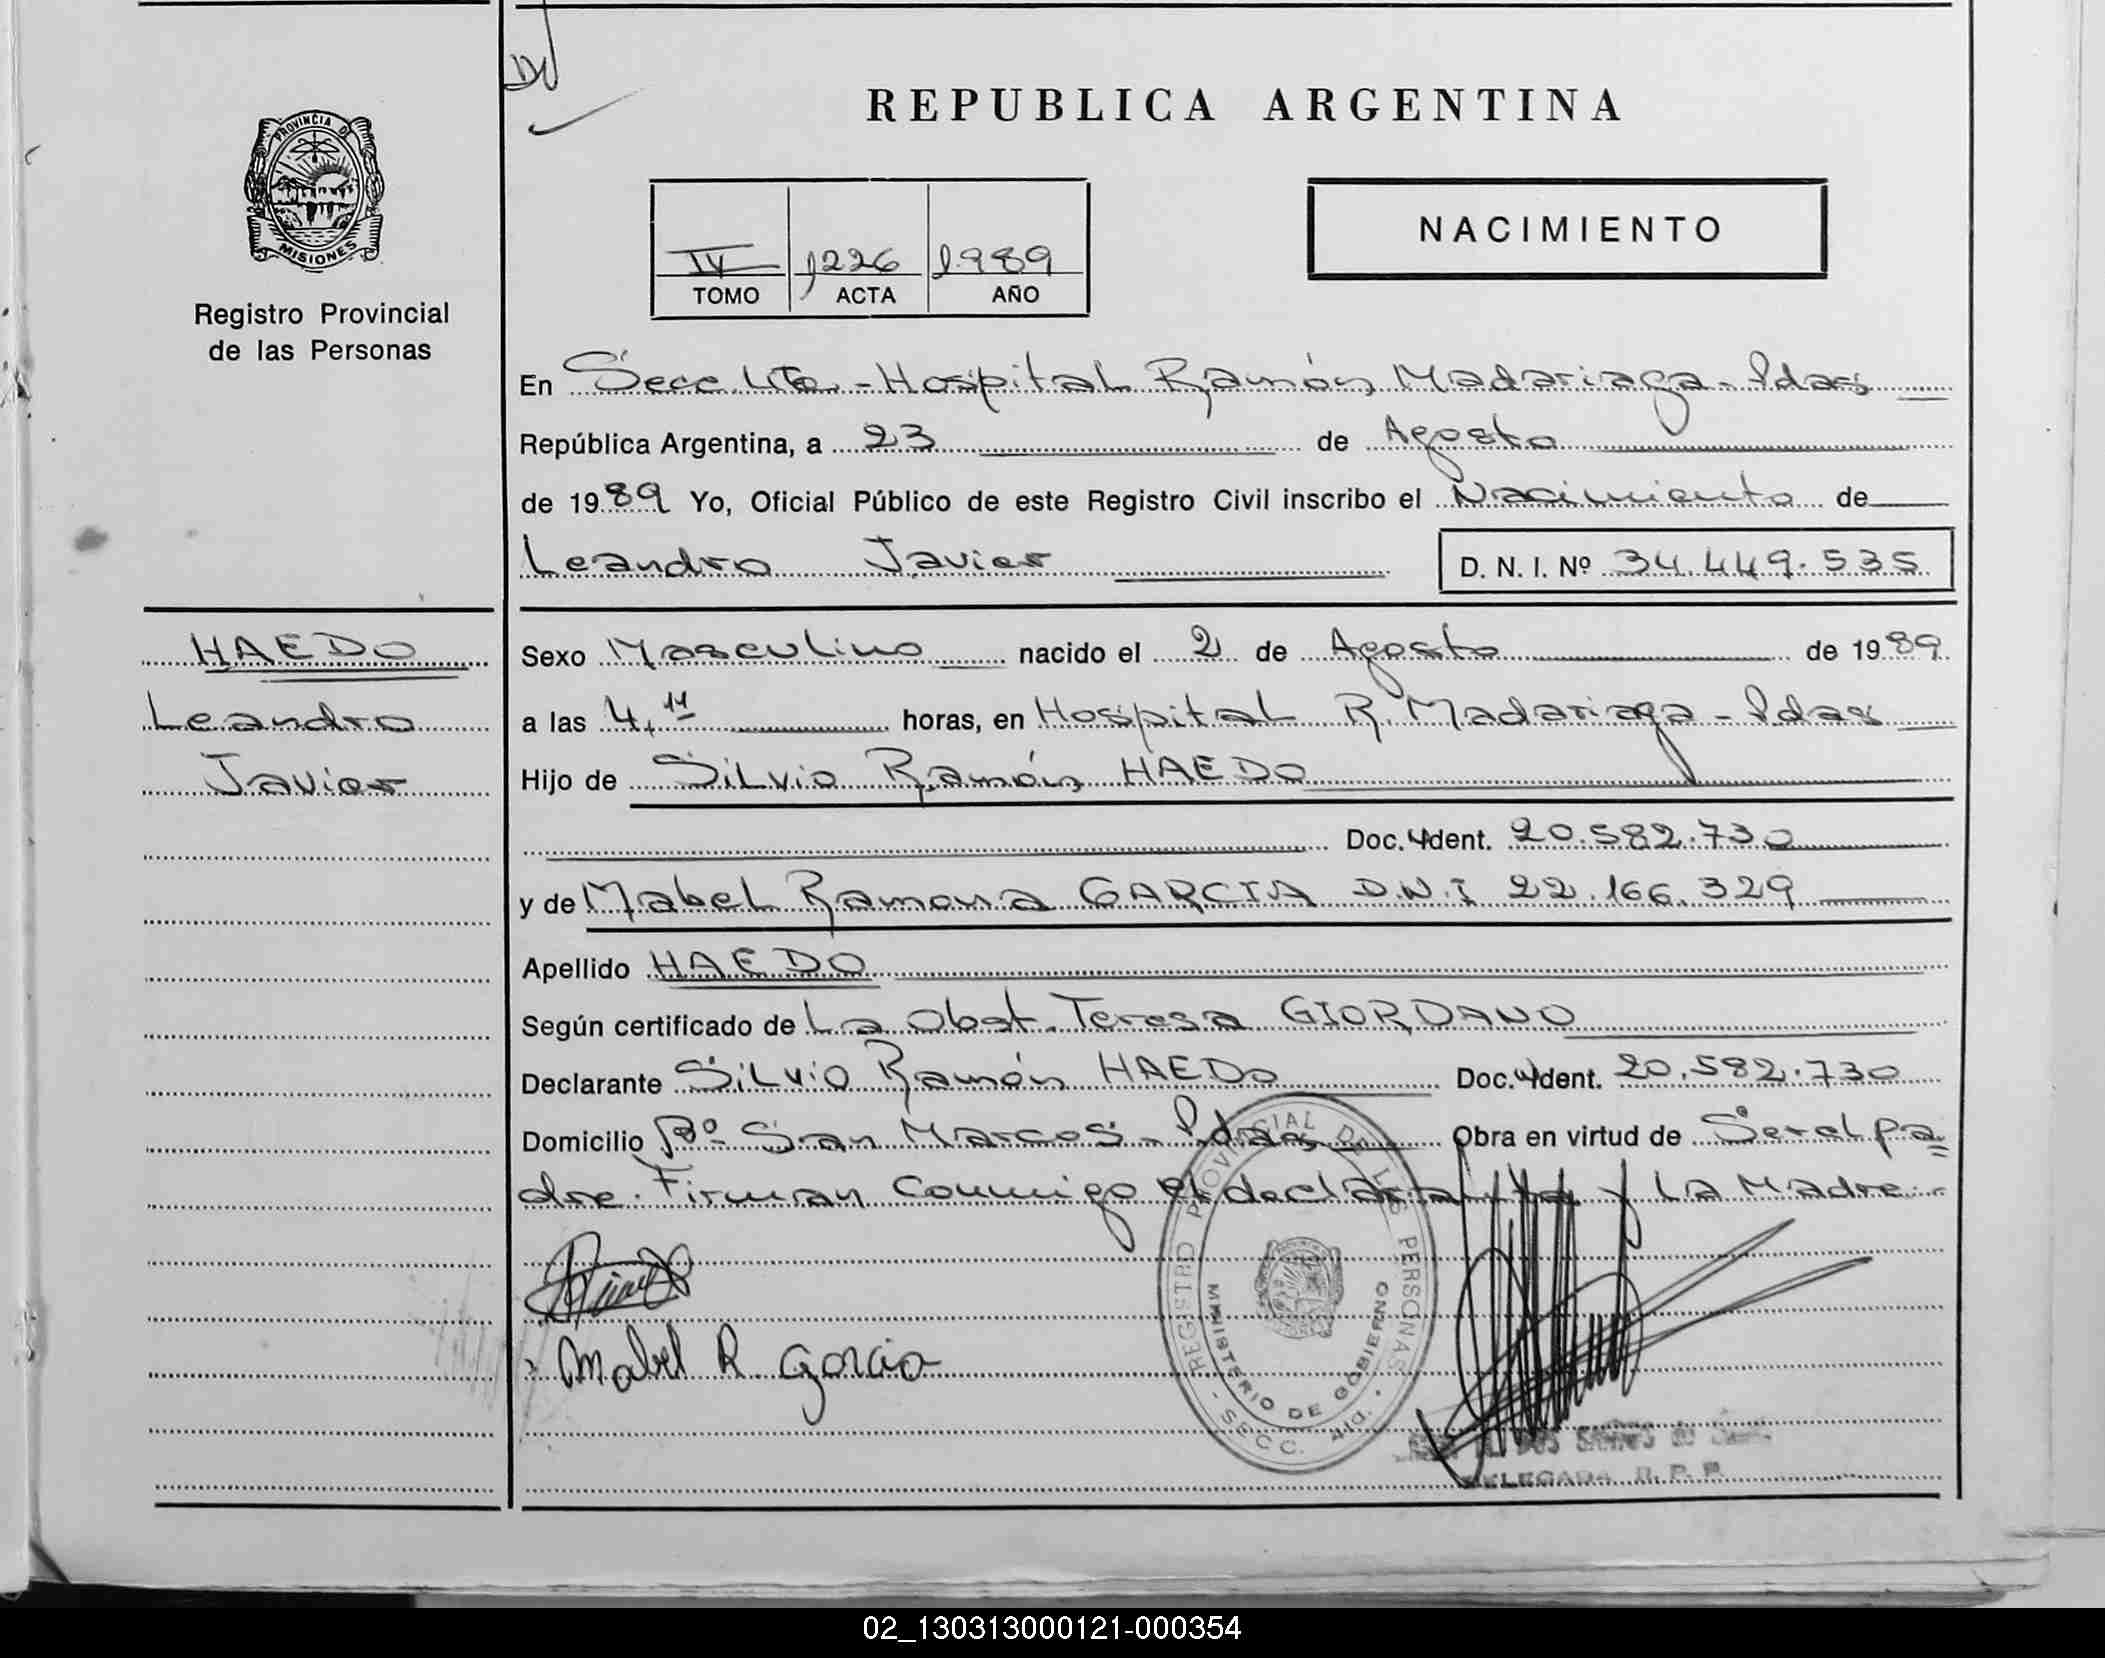 REPUBLICA ARGENTINA
PROVINCIA DE
MISIONES
Registro Provincial
de las Personas
NACIMIENTO
IV 1226 1989
TOMO ACTA AÑO
En Secc. 4ta. - Hospital Ramón Madariaga - Pdas
República Argentina, a 23 de Agosto
de 1989 Yo, Oficial Público de este Registro Civil inscribo el Nacimiento de
Leandro Javier D. N. I. Nº 34.449.535
HAEDO
Leandro
Javier
Sexo Masculino nacido el 2 de Agosto de 1989
a las 4,14 horas, en Hospital R. Madariaga - Pdas
Hijo de Silvio Ramón HAEDO
Doc. Ident. 20.582.730
y de Mabel Ramona GARCIA D.N.I 22.166.329
Apellido HAEDO
Según certificado de La Obst. Teresa GIORDANO
Declarante Silvio Ramón HAEDO Doc. Ident. 20.582.730
Domicilio Bº San Marcos - Pdas Obra en virtud de Ser el pa
dre. Firman conmigo el declarante y La Madre
Mabel R Garcia
REGISTRO PROVINCIAL DE LAS PERSONAS
MINISTERIO DE GOBIERNO
SECC. 4ta.
DOS SANTOS
DELEGADA R. P. P.
02_130313000121-000354